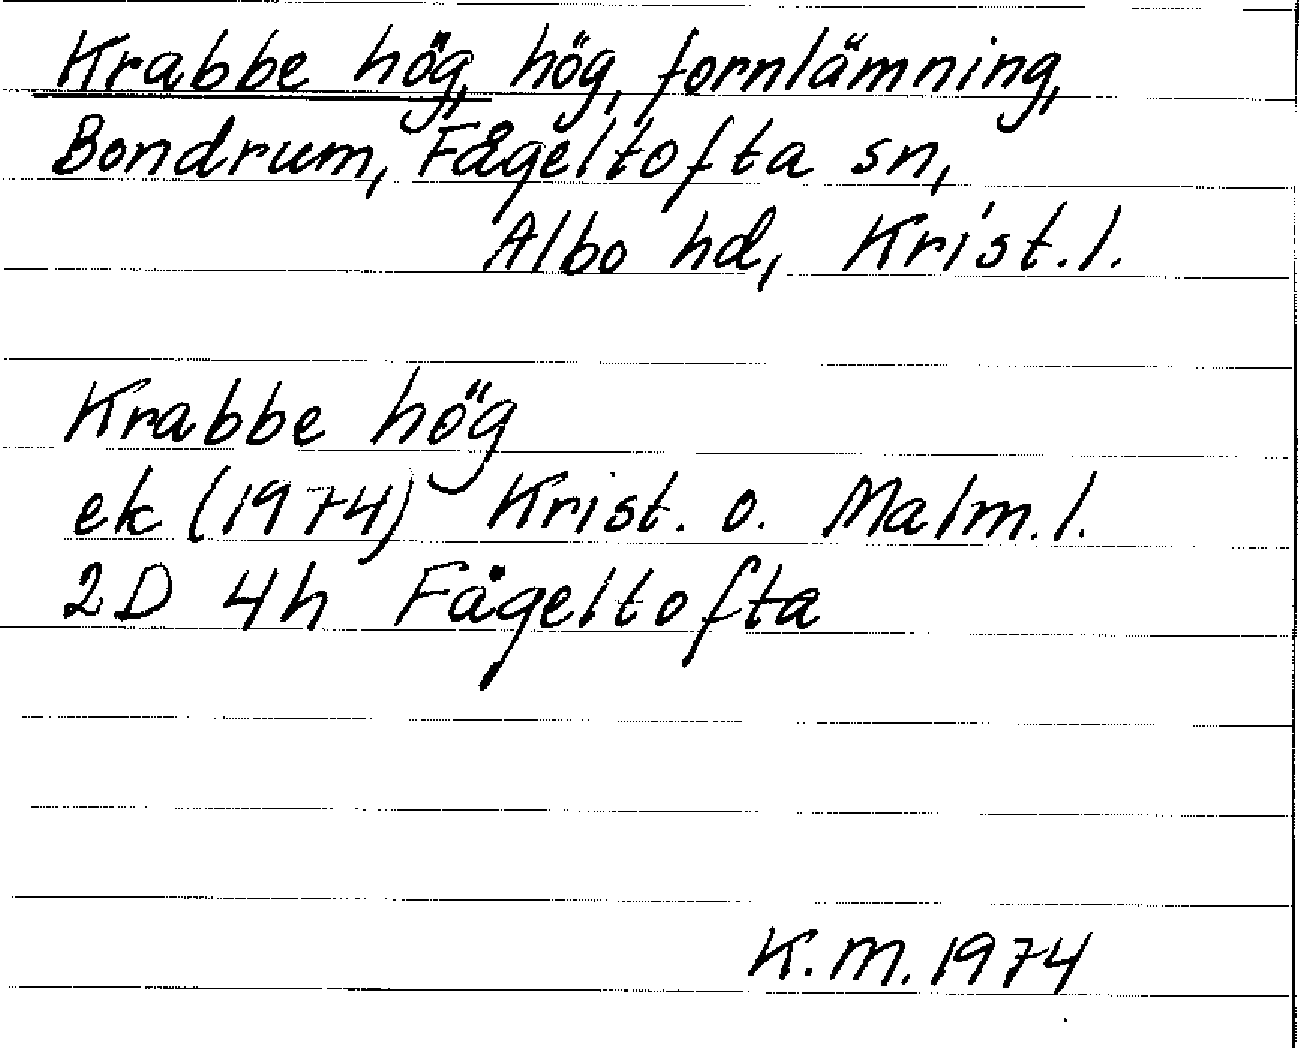 Krabbe hög, hög, fornlämning,
Bondrum, Fågeltofta sn,
Albo hd, Krist.l.
Krabbe hög
ek (1974) Krist. o. Malm.l.
2D 4h Fågeltofta
K.M. 1974